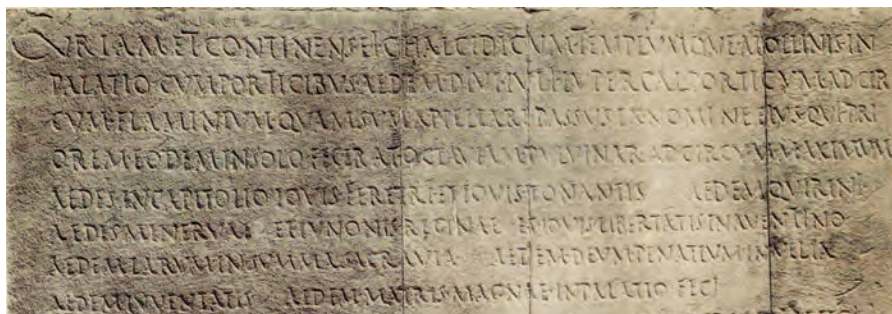 CVRIAM·ET·CONTINENS·EI·CHALCIDICVM·TEMPLVMQVE·APOLLINIS·IN
PALATIO·CVM·PORTICIBVS·AEDEM·DIVI·IVLI·LVPERCAL·PORTICVM·AD·CIR
CVM·FLAMINIVM·QVAM·SVM·APPELLARI·PASSVS·EX·NOMINE·EIVS·QVI·PRI
OREM·EODEM·IN·SOLO·FECERAT·OCTAVIAM·PVLVINAR·AD·CIRCVM·MAXIMVM
AEDES·IN·CAPITOLIO·IOVIS·FERETRI·ET·IOVIS·TONANTIS AEDEM·QVIRINI
AEDES·MINERVAE ET·IVNONIS·REGINAE ET·IOVIS·LIBERTATIS·IN·AVENTINO
AEDEM·LARVM·IN·SVMMA·SACRA·VIA AEDEM·DEVM·PENATIVM·IN·VELIA
AEDEM·IVVENTATIS AEDEM·MATRIS·MAGNAE·IN·PALATIO·FECI